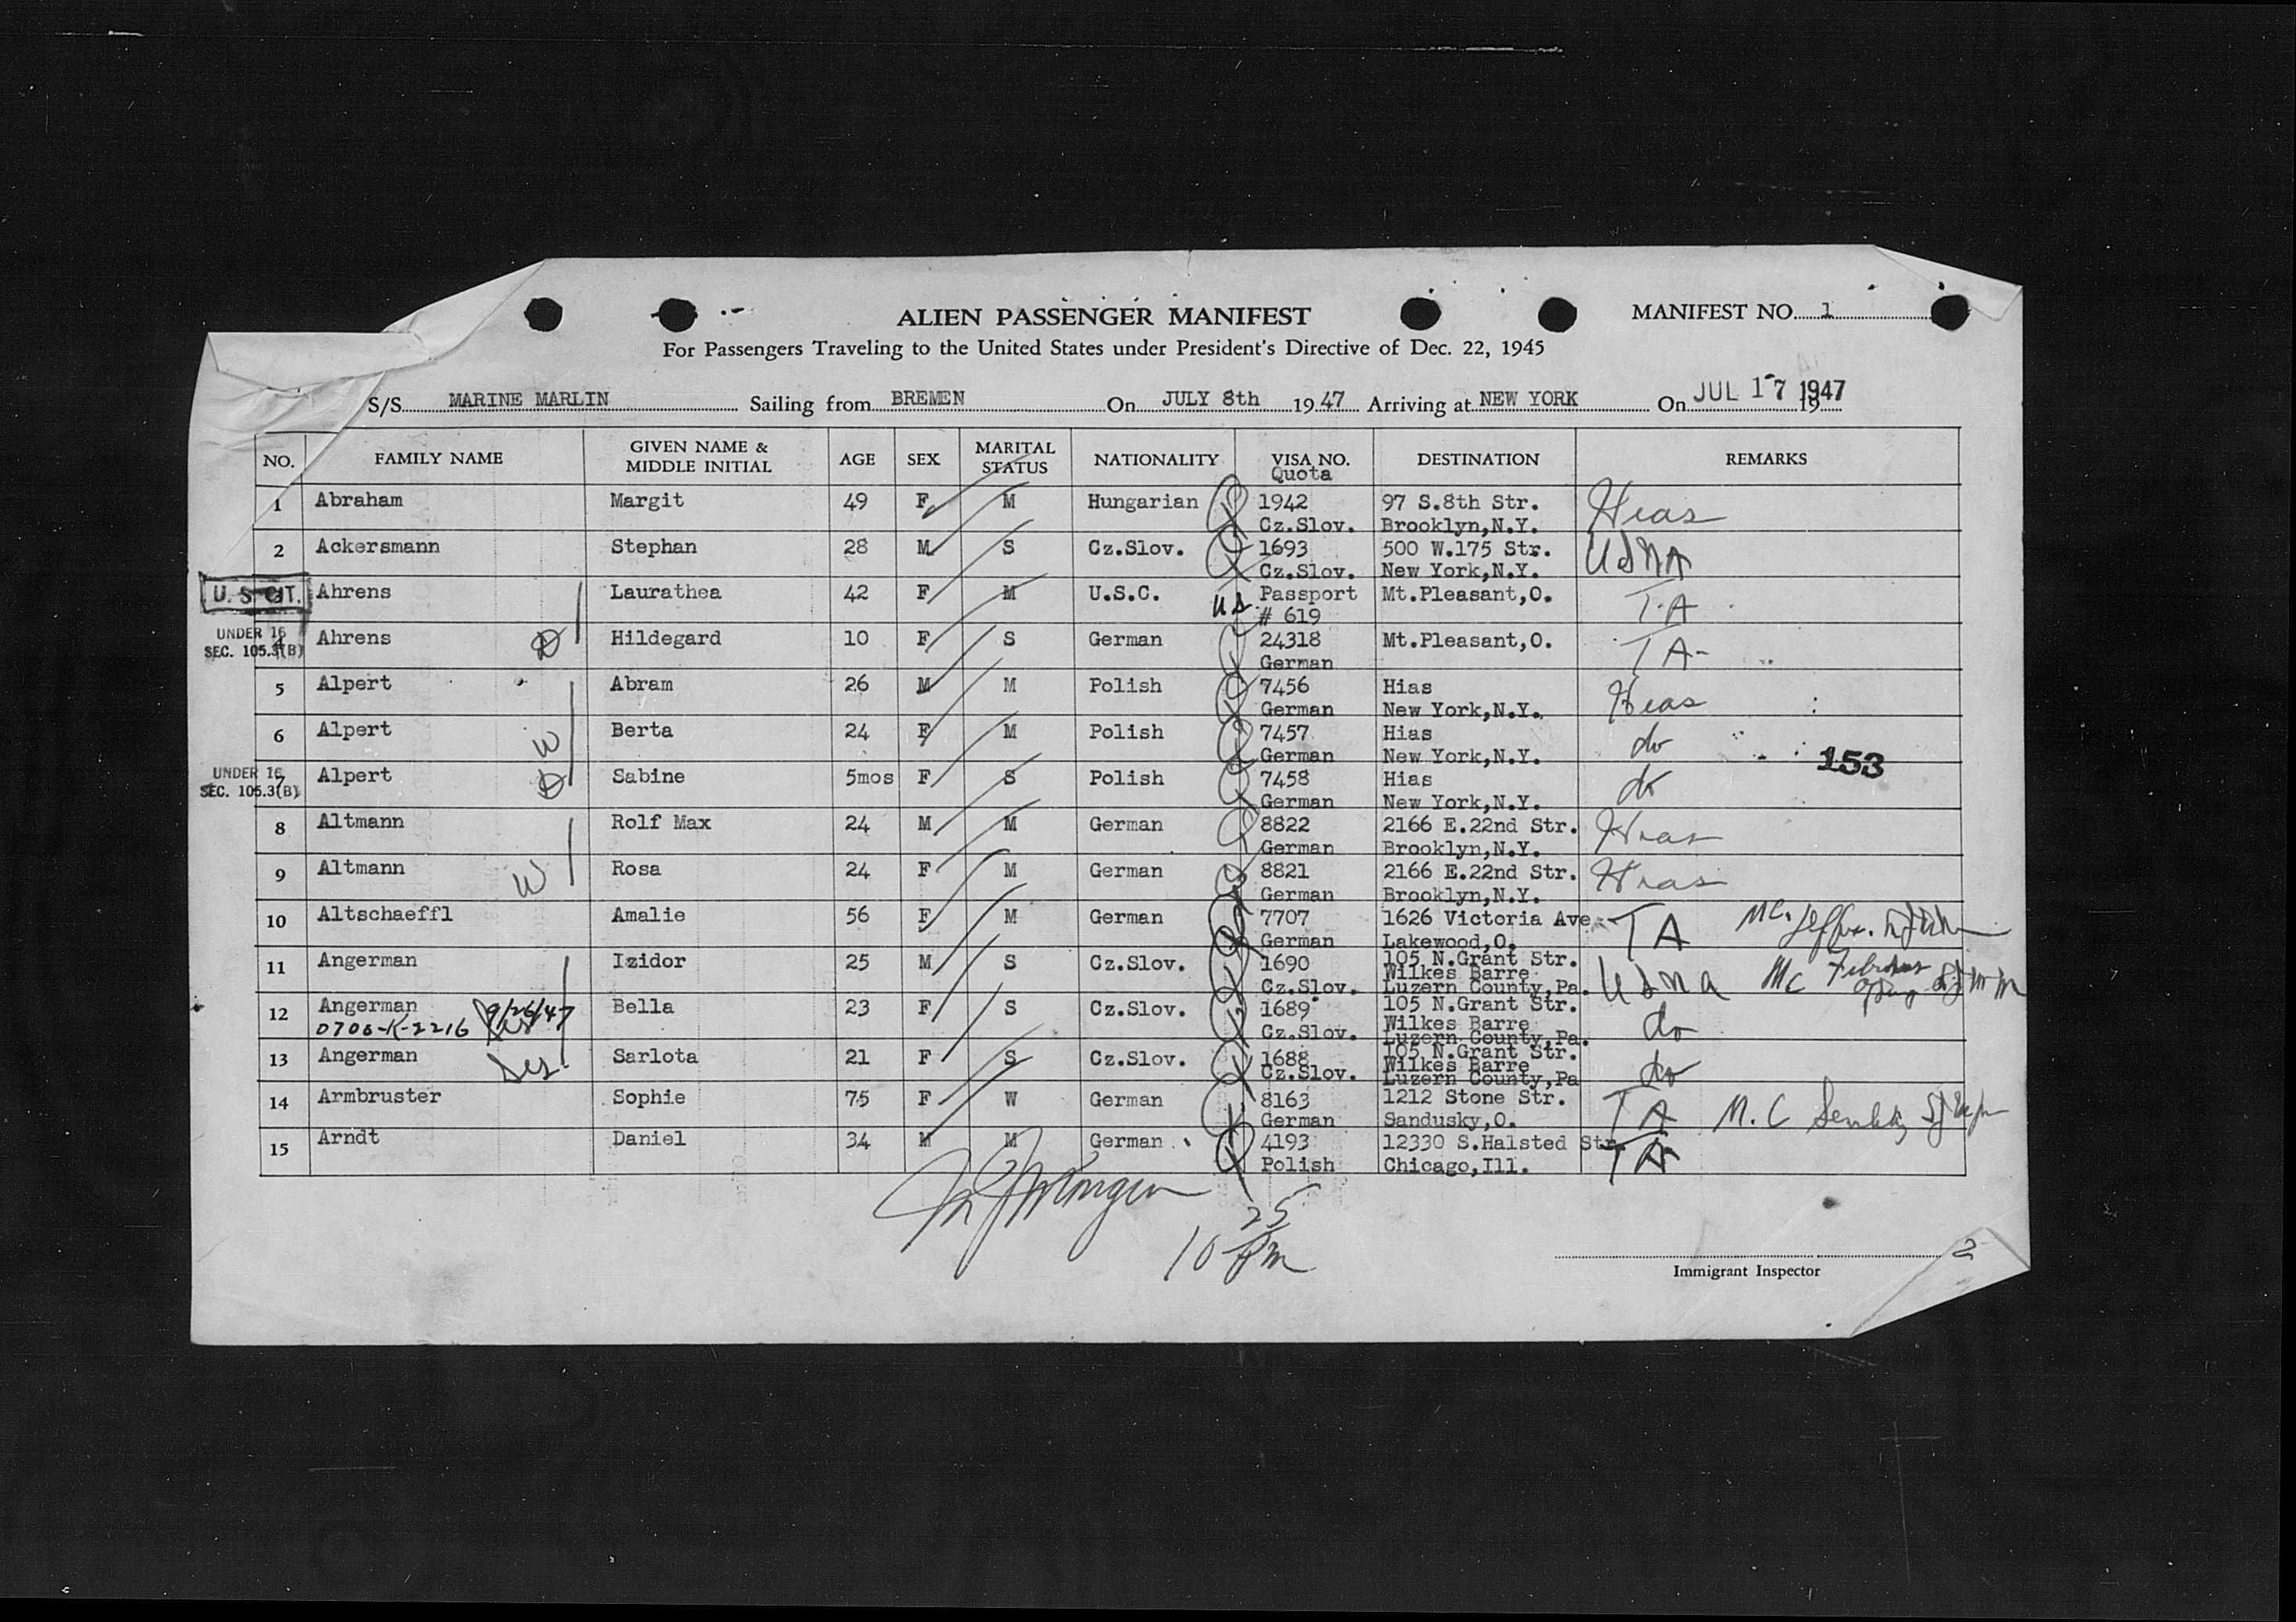 ALIEN PASSENGER MANIFEST
MANIFEST NO. 1
For Passengers Traveling to the United States under President's Directive of Dec. 22, 1945
S/S MARINE MARLIN Sailing from BREMEN On JULY 8th 19 47 Arriving at NEW YORK On JUL 17 1947 19
NO. FAMILY NAME GIVEN NAME & MIDDLE INITIAL AGE SEX MARITAL STATUS NATIONALITY VISA NO. Quota DESTINATION REMARKS
1 Abraham Margit 49 F M Hungarian 1942 97 S.8th Str. Hias
Cz.Slov. Brooklyn,N.Y.
2 Ackersmann Stephan 28 M S Cz.Slov. 1693 500 W.175 Str. USNA
Cz.Slov. New York,N.Y.
U. S. CIT. Ahrens Laurathea 42 F M U.S.C. US Passport Mt.Pleasant,O. T.A
# 619
UNDER 16
SEC. 105.3(B)
4 Ahrens D Hildegard 10 F S German 24318 Mt.Pleasant,O. TA-
German
5 Alpert Abram 26 M M Polish 7456 Hias Hias
German New York,N.Y.
6 Alpert W Berta 24 F M Polish 7457 Hias do
German New York,N.Y.
153
UNDER 16
SEC. 105.3(B)
7 Alpert D Sabine 5mos F S Polish 7458 Hias do
German New York,N.Y.
8 Altmann Rolf Max 24 M M German 8822 2166 E.22nd Str. Hias
German Brooklyn,N.Y.
9 Altmann W Rosa 24 F M German 8821 2166 E.22nd Str. Hias
German Brooklyn,N.Y.
10 Altschaeffl Amalie 56 F M German 7707 1626 Victoria Ave. TA MC.
German Lakewood,O.
11 Angerman Izidor 25 M S Cz.Slov. 1690 105 N.Grant Str. USNA MC
Wilkes Barre
Cz.Slov. Luzern County,Pa.
12 Angerman 9/26/47 Bella 23 F S Cz.Slov. 1689 105 N.Grant Str. do
0700-K-2216 Wilkes Barre
Cz.Slov. Luzern County,Pa.
13 Angerman Sarlota 21 F S Cz.Slov. 1688 105 N.Grant Str. do
Cz.Slov. Wilkes Barre
Luzern County,Pa
14 Armbruster Sophie 75 F W German 8163 1212 Stone Str. TA M.C
German Sandusky,O.
15 Arndt Daniel 34 M M German 4193 12330 S.Halsted Str. TA
Polish Chicago,Ill.
10 25 Pm
2
Immigrant Inspector